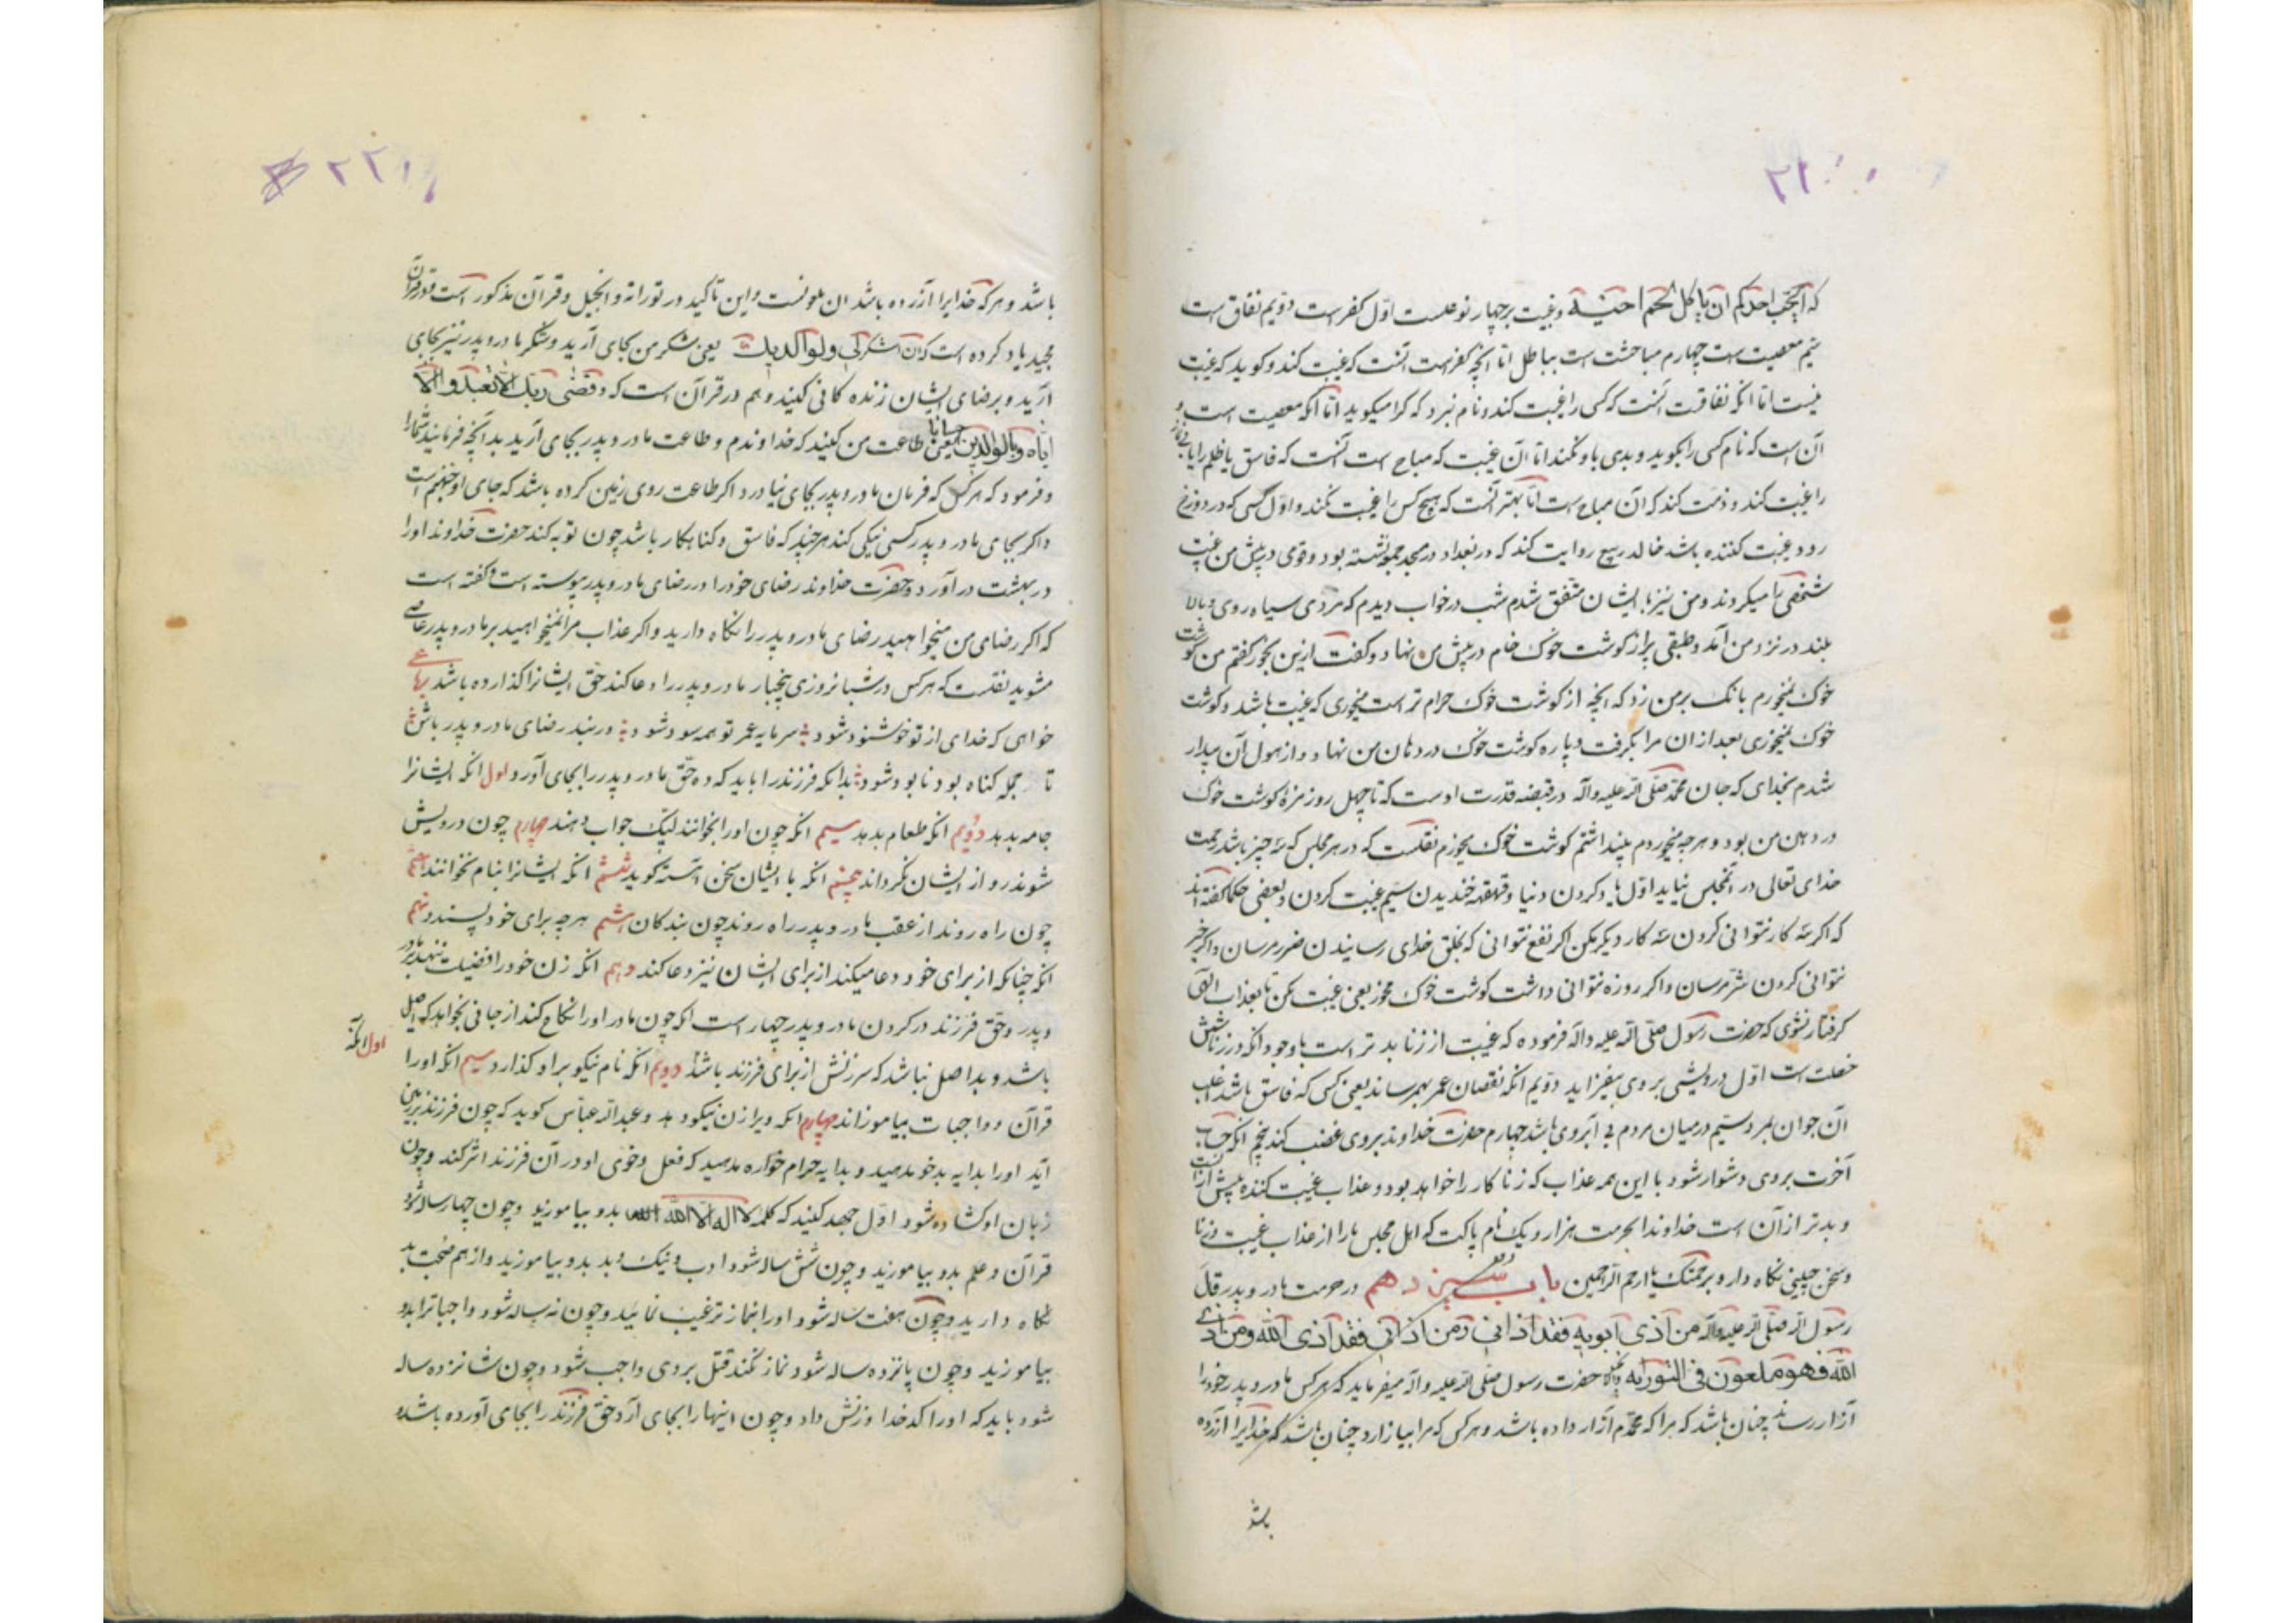 ۲۲۰
که ایحب احدکم ان یاکل لحم اخیه و غیبت بر چهار نوعست اول کفرست دویم نفاق است
سیم معصیت است چهارم مباحثت است بباطل اما انچه کفرست آنست که غیبت کند و کوید که غیبت
نیست اما انکه نفاقست آنست که کسی را غیبت کند و نام نبرد که کرا میکوید اما انکه معصیت است و
آن است که نام کسی را بکوید و بدی یاد کند اما آن غیبت که مباح است آنست که فاسق یا ظلم را یا
را غیبت کند و ذمت کند که آن مباح است اما بهتر آنست که هیچ کس را غیبت نکند و اول کسی که در دوزخ
رود غیبت کننده باشد خالد ربیع روایت کند که در بغداد در مسجد جمعه نشسته بود و قومی در پیش من غیبت
شخصی را میکردند و من نیز با ایشان متفق شدم شب در خواب دیدم که مردی سیاه روی و بالا
بلند در نزد من آمد و طبقی پر از کوشت خوک خام در پیش من نهاد و کفت ازین بخور کفتم من کوشت
خوک نمیخورم بانک بر من زد که انچه از کوشت خوک حرام تر است میخوری که غیبت باشد و کوشت
خوک نمیخوری بعد از ان مرا بکرفت و پاره کوشت خوک در دهان من نهاد و از هول آن بیدار
شدم بخدای که جان محمد صلی الله علیه و آله در قبضه قدرت اوست که تا چهل روز مزهٔ کوشت خوک
در دهن من بود و هر چه میخوردم پنداشتم کوشت خوک میخورم نقلست که در هر مجلس که سه چیز باشد رحمت
خدای تعالی در انمجلس نیاید اول یاد کردن دنیا و قهقهه خندیدن سیم غیبت کردن و بعضی حکما کفته اند
که اکر سه کار نتوانی کردن سه کار دیکر مکن اکر نفع نتوانی که بخلق خدای رسانیدن ضرر مرسان و اکر خیر
نتوانی کردن شر مرسان و اکر روزه نتوانی داشت کوشت خوک مخور یعنی غیبت مکن تا بعذاب الهی
کرفتار نشوی که حضرت رسول صلی الله علیه و آله فرموده که غیبت از زنا بد تر است با وجود انکه در زنا شش
خصلت است اول درویشی بر وی بیفزاید دویم انکه نقصان عمر بهمرساند یعنی کسی که فاسق باشد اغلب
آن جوان مرد سیم در میان مردم بی آبروی باشد چهارم حضرت خداوند بر وی غضب کند پنجم انکه حساب
آخرت بر وی دشوار شود با این همه عذاب که زناکار را خواهد بود و عذاب غیبت کننده بیش از آنست
و بدتر از آن است خداوندا بحرمت هزار و یک نام پاکت که اهل مجلس ما را از عذاب غیبت و زنا
و سخن چینی نکاه دار برحمتک یا ارحم الراحمین باب سیزدهم در حرمت مادر و پدر قال
رسول الله صلی الله علیه و آله من آذی ابویه فقد آذانی و من آذانی فقد آذی الله و من آذی
الله فهو ملعون فی التوریه حضرت رسول صلی الله علیه و آله میفرماید که هر کس مادر و پدر خود را
آزار رساند چنان باشد که مرا که محمدم آزار داده باشد و هر کس که مرا بیازارد چنان باشد که خدایرا آزرده
باشد
۲۲۱
باشد و هر که خدایرا آزرده باشد ان ملعونست و این تاکید در توراة و انجیل و قرآن مذکور است و در قرآن
مجید یاد کرده است که ان اشکر لی و لوالدیک یعنی شکر من بجای آرید و شکر مادر و پدر نیز بجای
آرید و برضای ایشان زنده کانی کنید و هم در قرآن است که و قضی ربک الا تعبدوا الا
ایاه و بالوالدین احسانا یعنی طاعت من کنید که خداوندم و طاعت مادر و پدر بجای آرید بدآنچه فرمایند شما را
و فرمود که هر کس که فرمان مادر و پدر بجای نیاورد اکر طاعت روی زمین کرده باشد که جای او جهنم است
و اکر بجای مادر و پدر کسی نیکی کند هر چند که فاسق و کناهکار باشد چون توبه کند حضرت خداوند او را
در بهشت درآورد و حضرت خداوند رضای خود را در رضای مادر و پدر پیوسته است و کفته است
که اکر رضای من میخواهید رضای مادر و پدر را نکاه دارید و اکر عذاب مرا نمیخواهید بر مادر و پدر عاصی
مشوید نقلست که هر کس در شبانروزی پنجبار مادر و پدر را دعا کند حق ایشانرا کذارده باشد رباعی
خواهی که خدای از تو خوشنود شود سرمایه عمر تو همه سود شود در بند رضای مادر و پدر باش
تا جمله کناه بود نابود شود بدانکه فرزند را باید که ده حق مادر و پدر را بجای آورد اول انکه ایشانرا
جامه بدهد دویم انکه طعام بدهد سیم انکه چون او را بخوانند لبیک جواب دهند چهارم چون درویش
شوند رو از ایشان نکرداند پنجم انکه با ایشان سخن آهسته کوید ششم انکه ایشانرا بنام نخوانند هفتم
چون راه روند از عقب مادر و پدر راه روند چون بندکان هشتم هر چه برای خود پسندد نهم
انکه چنانکه از برای خود دعا میکند از برای ایشان نیز دعا کند دهم انکه زن خود را فضیلت ننهد بر مادر
و پدر و حق فرزند در کردن مادر و پدر چهار است اول آنکه انکه چون مادر او را نکاح کند از جائی بخواهد که اصل
باشد و بد اصل نباشد که سرزنش از برای فرزند باشد دویم انکه نام نیکو بر او کذارد سیم انکه او را
قرآن و واجبات بیاموزاند چهارم انکه ویرا زن نیکو دهد و عبدالله عباس کوید که چون فرزند بر زمین
آید او را بدایه بدخو مدهید و بدایه حرام خواره مدهید که فعل و خوی او در آن فرزند اثر کند و چون
زبان او کشاده شود اول جهد کنید که کلمه لا اله الا الله بدو بیاموزید و چون چهار ساله شود
قرآن و علم بدو بیاموزید و چون شش ساله شود ادب و نیک و بد بدو بیاموزید و از هم صحبت بد
نکاه دارید و چون هفت ساله شود او را بنماز ترغیب نمائید و چون نه ساله شود واجباترا بدو
بیاموزید و چون پانزده ساله شود نماز نکند قتل بر وی واجب شود و چون شانزده ساله
شود باید که او را کدخدا و زنش داد و چون اینها را بجای آرد حق فرزند را بجای آورده باشد